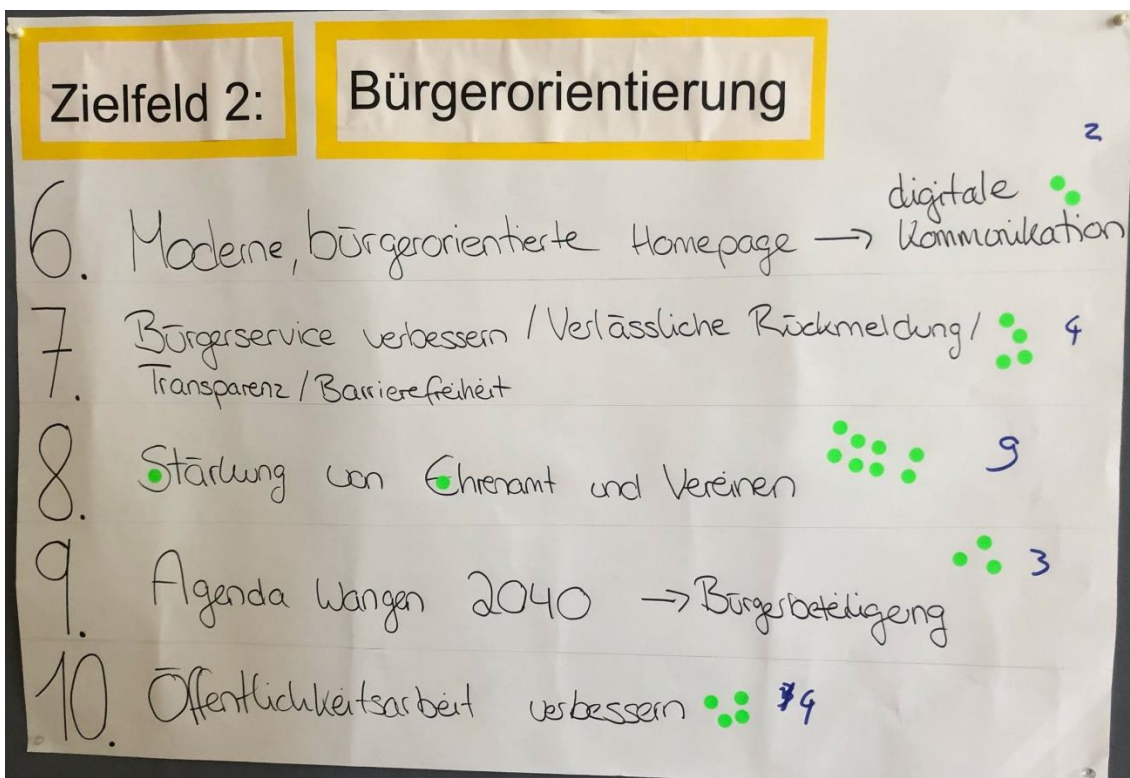 Zielfeld 2: Bürgerorientierung
2
6. Moderne, bürgerorientierte Homepage → digitale Kommunikation
7. Bürgerservice verbessern / Verlässliche Rückmeldung / 4
Transparenz / Barrierefreiheit
8. Stärkung von Ehrenamt und Vereinen 9
9. Agenda Wangen 2040 → Bürgerbeteiligung 3
10. Öffentlichkeitsarbeit verbessern 4